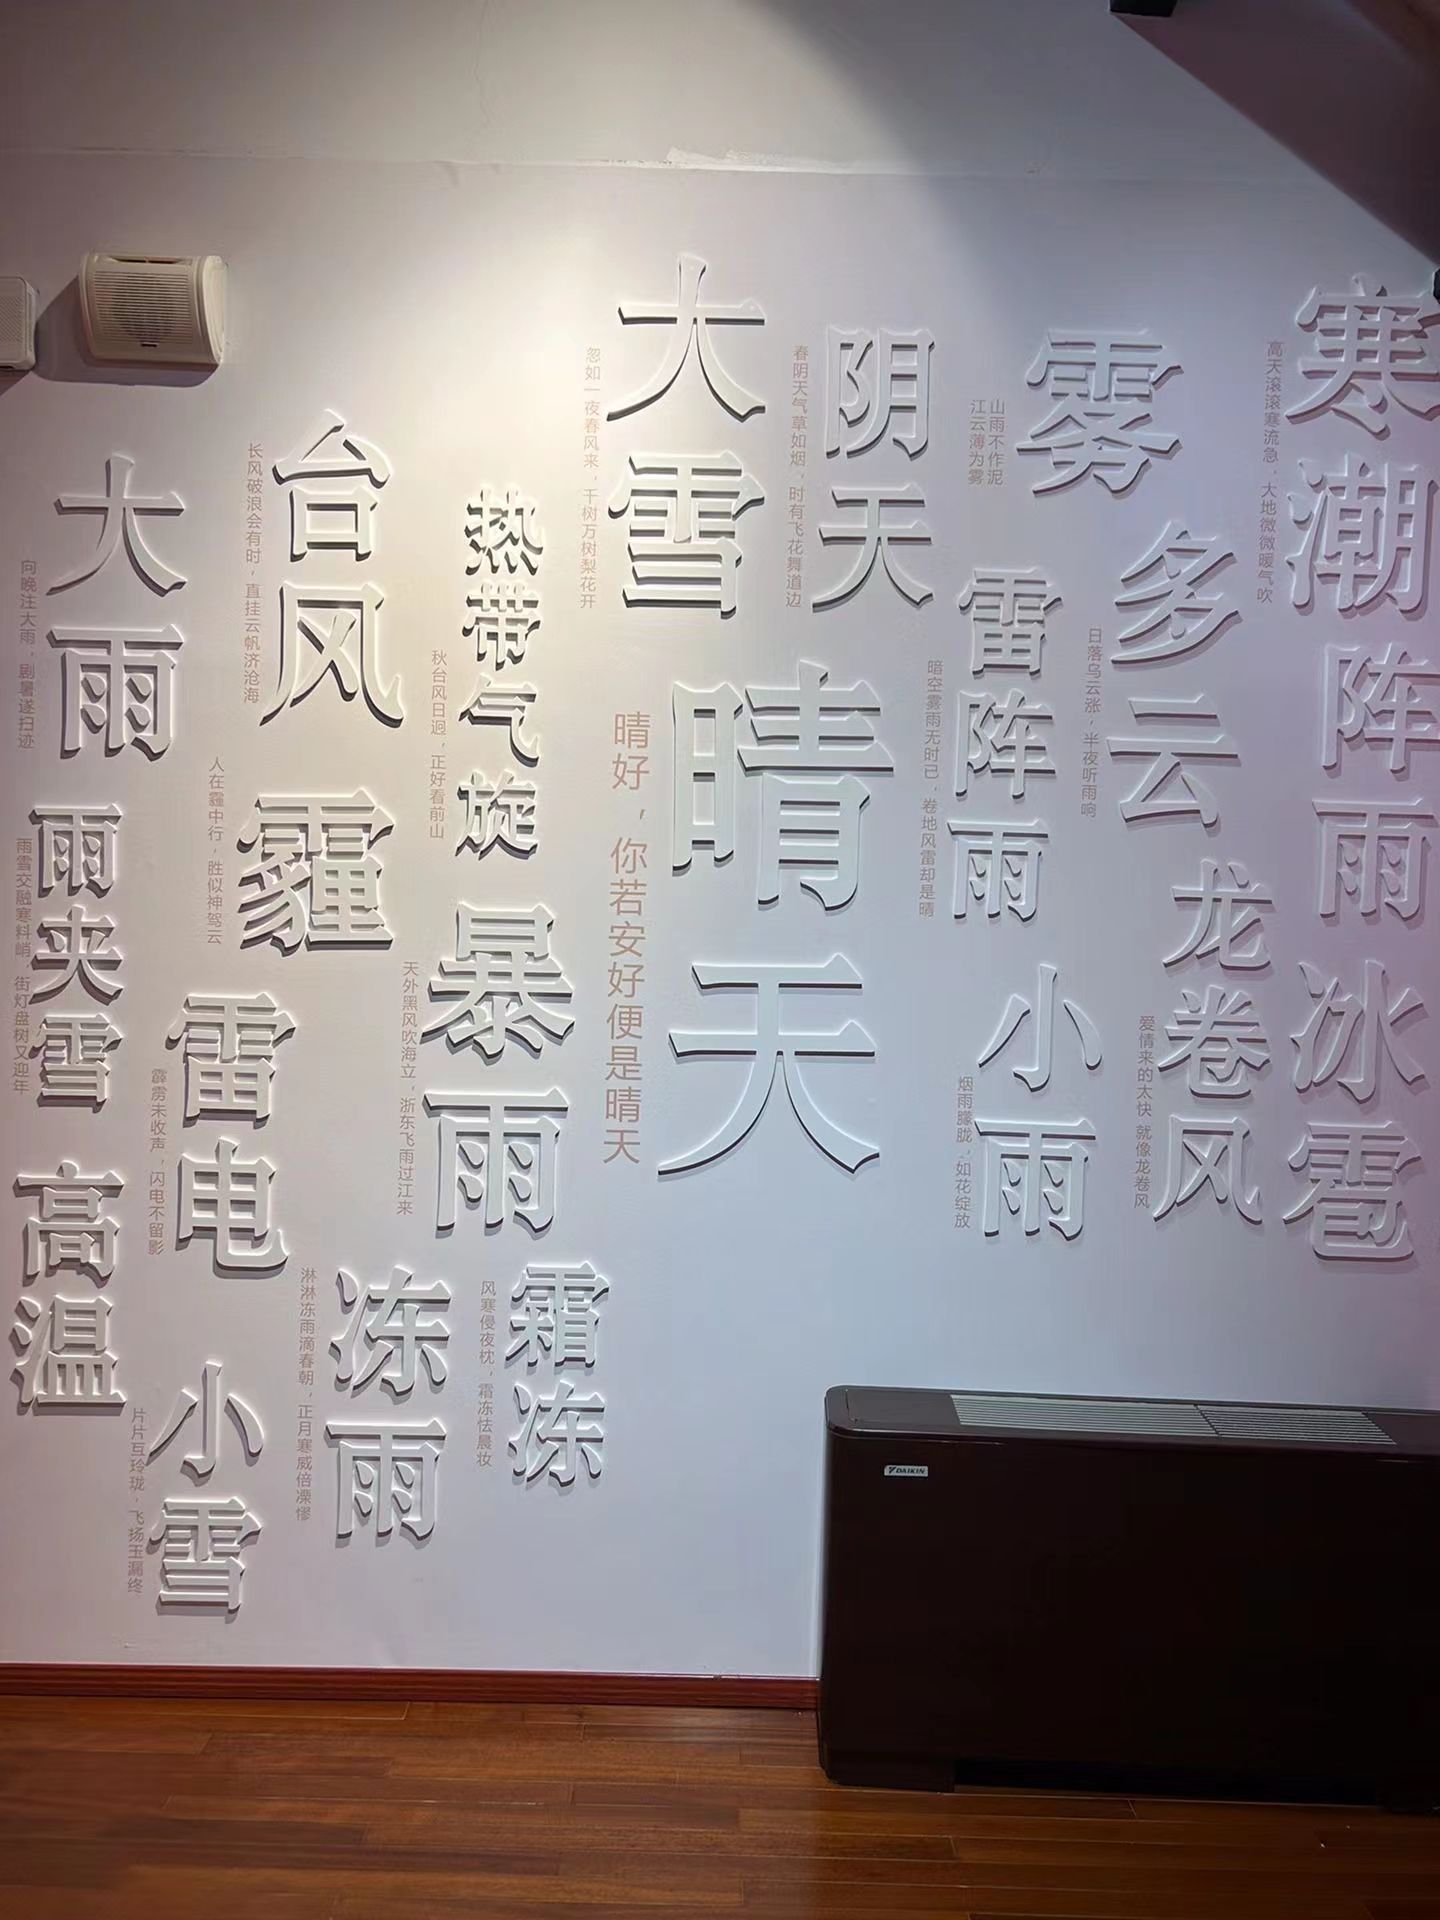 寒潮
高天滚滚寒流急，大地微微暖气吹
阵雨
冰雹
雾
山雨不作泥
江云薄为雾
多云
日落乌云张，半夜听雨响
龙卷风
爱情来的太快 就像龙卷风
阴天
春阴天气草如烟，时有飞花舞道边
雷阵雨
暗空雾雨无时已，卷地风雷却是晴
小雨
烟雨朦胧，如花绽放
大雪
忽如一夜春风来，千树万树梨花开
晴天
晴好，你若安好便是晴天
热带气旋
秋台风日迥，正好看前山
暴雨
天外黑风吹海立，浙东飞雨过江来
霜冻
风寒侵夜枕，霜冻怯晨妆
台风
长风破浪会有时，直挂云帆济沧海
霾
人在霾中行，胜似神驾云
雷电
霹雳未收声，闪电不留影
冻雨
淋淋冻雨滴春朝，正月寒威倍凛惨
小雪
片片互玲珑，飞扬玉漏终
大雨
向晚注大雨，剧暑遂扫迹
雨夹雪
雨雪交融寒料峭，街灯盘树又迎年
高温
DAIKIN